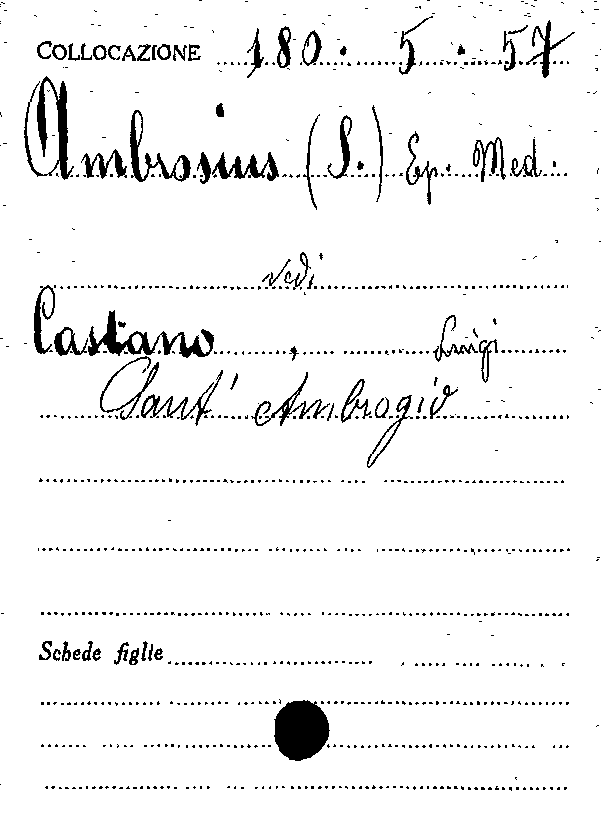 COLLOCAZIONE 180. 5. 57
Ambrosius (S.) Ep. Med.
vedi
Castano, Luigi
Sant' Ambrogio
Schede figlie